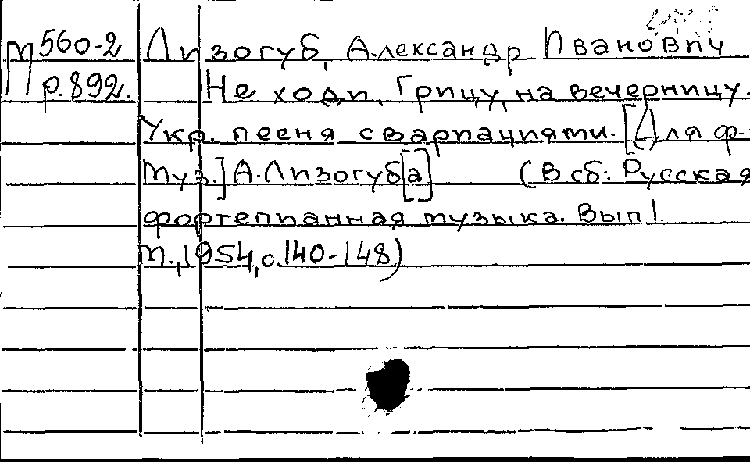 М 560-2 Лизогуб, Александр Иванович
р.892. Не ходи, Грицу, на вечерницу.
Укр. песня с вариациями. [Для ф-
муз.] А. Лизогуб[а] (В сб: Русская
фортепианная музыка. Вып 1
М., 1954, с. 140-148)